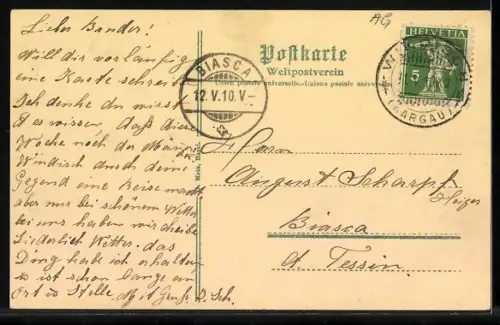 AG
HELVETIA
5
(AARGAU)
Postkarte
Weltpostverein
Union postale universelle
BIASCA
12.V.10.V-
Lieber Bruder!
Will dir vorläufig
eine Karte schreiben
Ich denke du wirst
es wissen, dass diese
Woche noch die
Windisch durch deine
Gegend eine Reise macht
aber nur bei schönem Wetter
bei uns haben wir
Liederlich Wetter. das
Ding habe ich erhalten
es ist schon lange an
Ort & Stelle. Mit Gruß J. Sch.
Herrn
August Scharpf
Heizer
Biasca
Ct. Tessin.